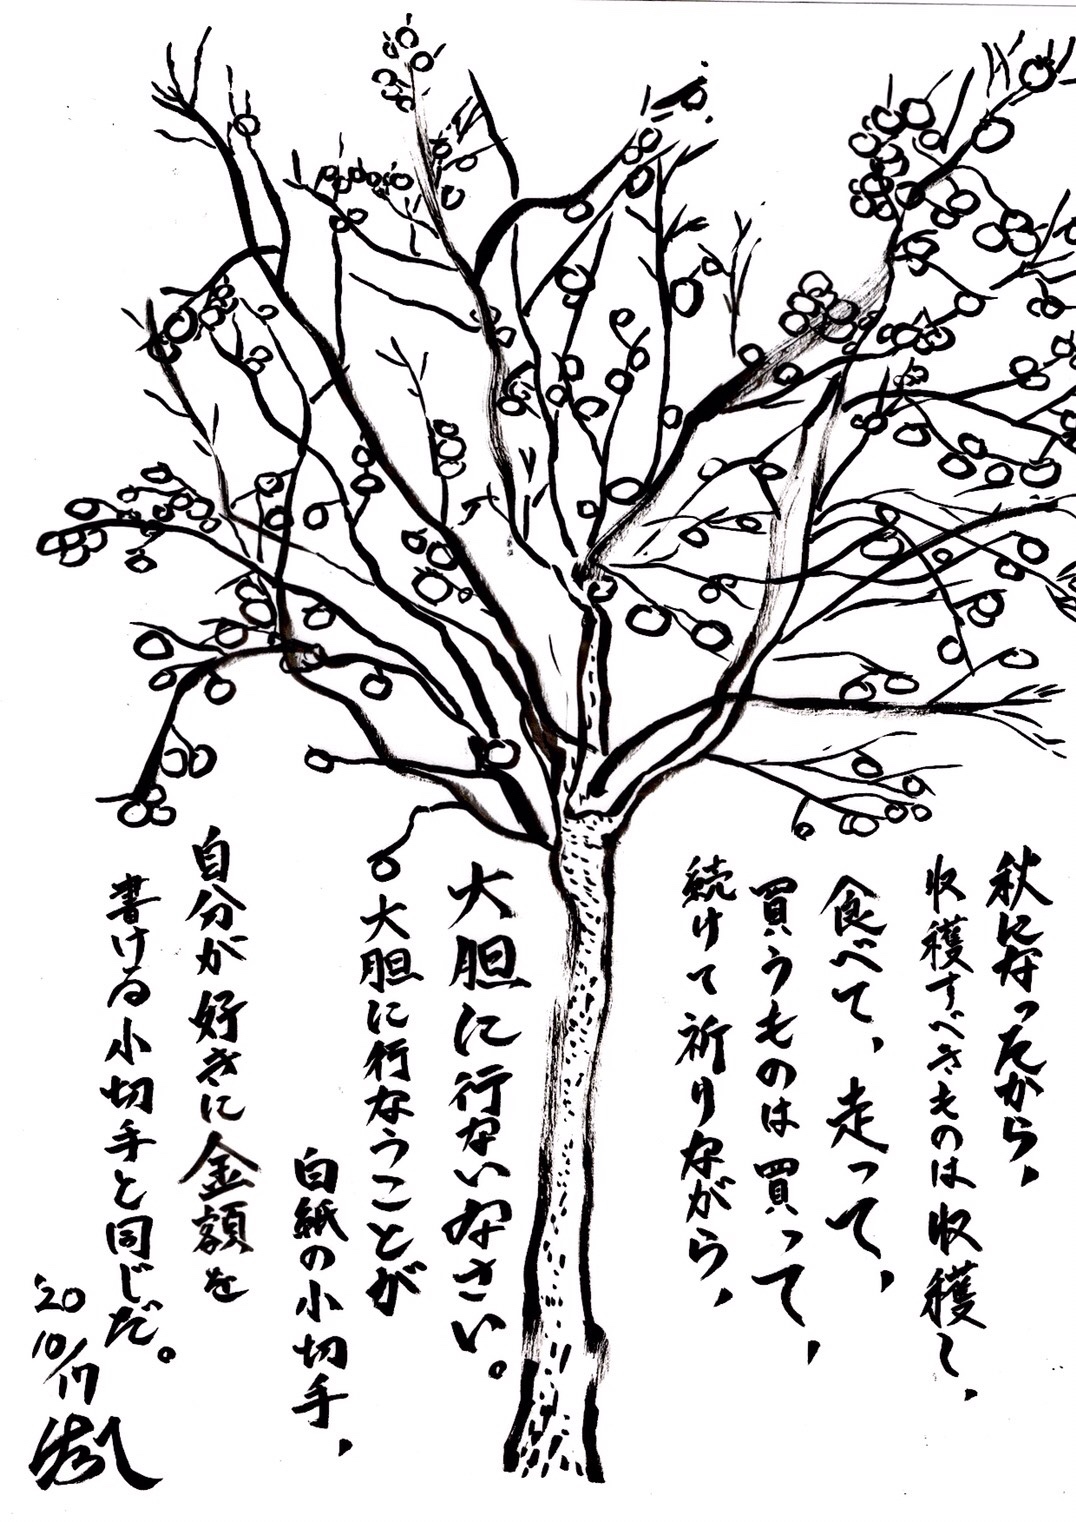 秋になったから、
収穫すべきものは収穫し、
食べて、走って、
買うものは買って、
続けて祈りながら、
大胆に行ないなさい。
大胆に行なうことが
白紙の小切手、
自分が好きに金額を
書ける小切手と同じだ。
'20
10/17